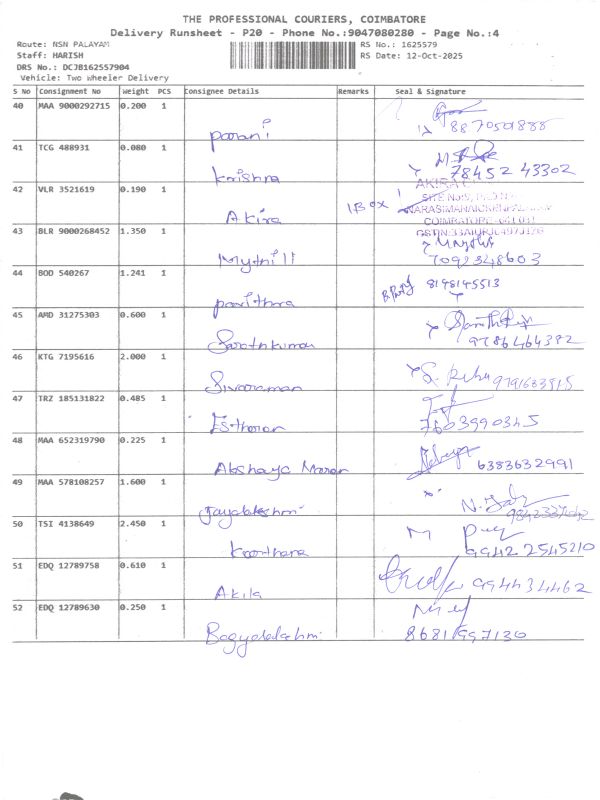 THE PROFESSIONAL COURIERS, COIMBATORE
Delivery Runsheet - P20 - Phone No.:9047080280 - Page No.:4
Route: NSN PALAYAM RS No.: 1625579
Staff: HARISH RS Date: 12-Oct-2025
DRS No.: DCJB162557904
Vehicle: Two Wheeler Delivery
S No Consignment No Weight PCS Consignee Details Remarks Seal & Signature
40 MAA 9000292715 0.200 1
parani 8870501888
41 TCG 488931 0.080 1
Krishna 78452 43302
42 VLR 3521619 0.190 1
Akira 1 Box AKIRA
COIMBATORE
43 BLR 9000268452 1.350 1
Mythili 7092348603
44 BOD 540267 1.241 1
pavithra 8148145513
45 AMD 31275303 0.600 1
Sarathkumar 9786464382
46 KTG 7195616 2.000 1
Sivaraman
47 TRZ 185131822 0.485 1
7603990345
48 MAA 652319790 0.225 1
Akshaya Maran 6383632991
49 MAA 578108257 1.600 1
Jayalakshmi
50 TSI 4138649 2.450 1
99422545210
51 EDQ 12789758 0.610 1
Akila 9944344462
52 EDQ 12789630 0.250 1
Bagyalakshmi 8681997130